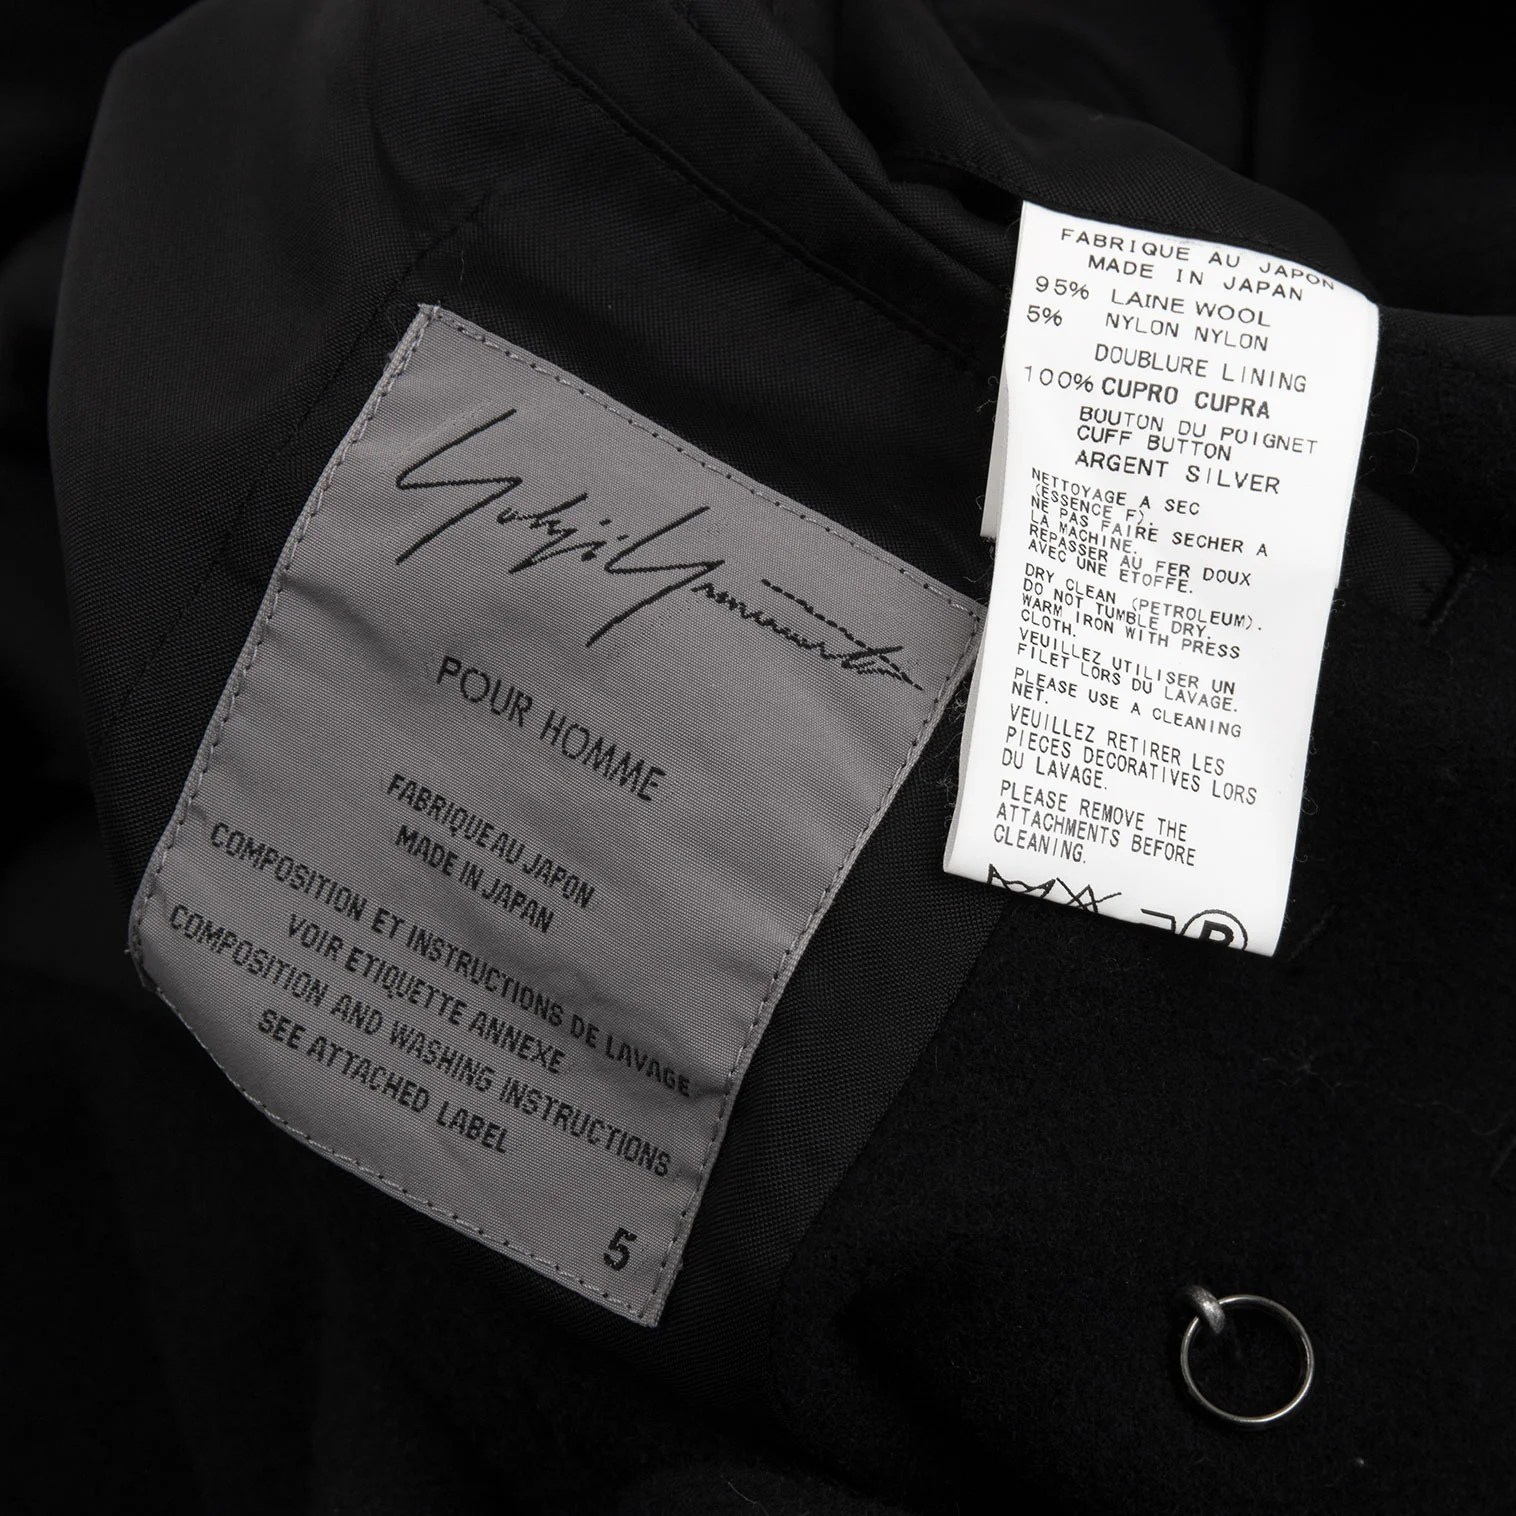 Yohji Yamamoto
POUR HOMME
FABRIQUE AU JAPON
MADE IN JAPAN
COMPOSITION ET INSTRUCTIONS DE LAVAGE
VOIR ETIQUETTE ANNEXE
COMPOSITION AND WASHING INSTRUCTIONS
SEE ATTACHED LABEL
5
FABRIQUE AU JAPON
MADE IN JAPAN
95% LAINE WOOL
5% NYLON NYLON
DOUBLURE LINING
100% CUPRO CUPRA
BOUTON DU POIGNET
CUFF BUTTON
ARGENT SILVER
NETTOYAGE A SEC
(ESSENCE F).
NE PAS FAIRE SECHER A
LA MACHINE.
REPASSER AU FER DOUX
AVEC UNE ETOFFE.
DRY CLEAN (PETROLEUM).
DO NOT TUMBLE DRY.
WARM IRON WITH PRESS
CLOTH.
VEUILLEZ UTILISER UN
FILET LORS DU LAVAGE.
PLEASE USE A CLEANING
NET.
VEUILLEZ RETIRER LES
PIECES DECORATIVES LORS
DU LAVAGE.
PLEASE REMOVE THE
ATTACHMENTS BEFORE
CLEANING.
P